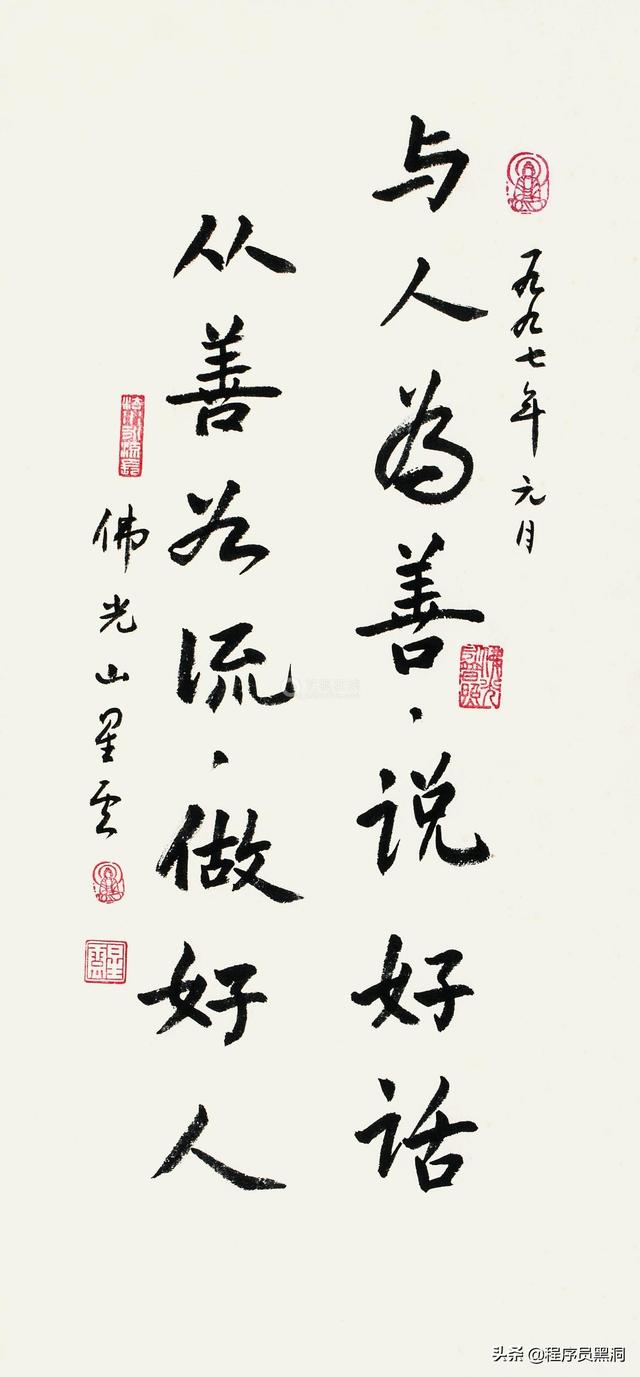 一九九七年元月
与人為善·说好话
从善如流·做好人
佛光山星云
星雲
头条 @程序员黑洞